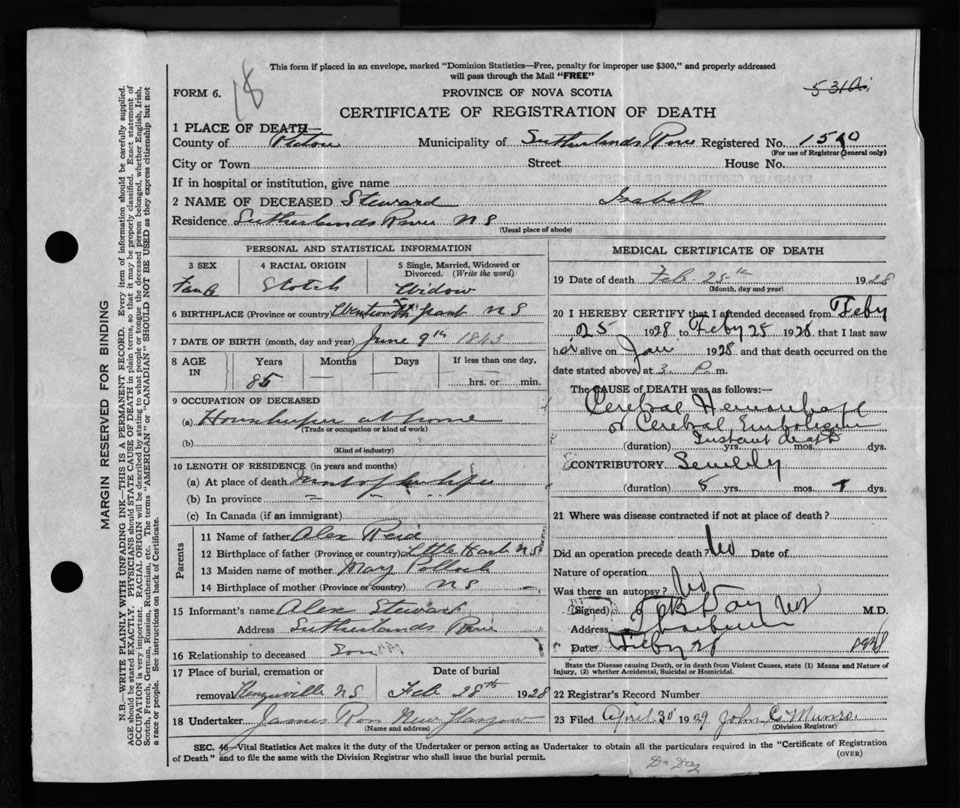 This form if placed in an envelope, marked "Dominion Statistics—Free, penalty for improper use $300," and properly addressed
will pass through the Mail "FREE"
18
FORM 6.
PROVINCE OF NOVA SCOTIA
CERTIFICATE OF REGISTRATION OF DEATH
1 PLACE OF DEATH—
County of Pictou Municipality of Sutherlands River Registered No.
(For use of Registrar General only)
City or Town Street House No.
If in hospital or institution, give name
2 NAME OF DECEASED Steward Isabell
Residence Sutherlands River N S
(Usual place of abode)
PERSONAL AND STATISTICAL INFORMATION
3 SEX
4 RACIAL ORIGIN Scotch
5 Single, Married, Widowed or Divorced. (Write the word)
Widow
6 BIRTHPLACE (Province or country) Grant N S
7 DATE OF BIRTH (month, day and year) June 9th 1843
8 AGE IN Years Months Days If less than one day,
85 hrs. or min.
9 OCCUPATION OF DECEASED
(a) Housekeeper at home
(Trade or occupation or kind of work)
(b)
(Kind of industry)
10 LENGTH OF RESIDENCE (in years and months)
(a) At place of death most of her life
(b) In province " " "
(c) In Canada (if an immigrant)
Parents
11 Name of father Alex Reid
12 Birthplace of father (Province or country) Little Harb NS
13 Maiden name of mother Mary Pollock
14 Birthplace of mother (Province or country) N S
15 Informant's name Alex Stewart
Address Sutherlands River
16 Relationship to deceased Son
17 Place of burial, cremation or removal N S
Date of burial Feb 28th 1928
18 Undertaker James Ross New Glasgow
(Name and address)
MEDICAL CERTIFICATE OF DEATH
19 Date of death Feb 25th 1928
(Month, day and year)
20 I HEREBY CERTIFY that I attended deceased from Feby
25 1928 to Feby 25 1928 that I last saw
her alive on Jan 1928 and that death occurred on the
date stated above, at 3 P m.
The CAUSE OF DEATH was as follows:—
Cerebral Hemorrhage
or Cerebral Embolism
Instant death
(duration) yrs. mos. dys.
CONTRIBUTORY Senility
(duration) 5 yrs. mos. dys.
21 Where was disease contracted if not at place of death?
Did an operation precede death? No Date of
Nature of operation
Was there an autopsy? No
(Signed) Day M.D.
Address
Date Feby 1928
State the Disease causing Death, or in death from Violent Causes, state (1) Means and Nature of
Injury, (2) whether Accidental, Suicidal or Homicidal.
22 Registrar's Record Number
23 Filed April 30 1929 John C Munro
(Division Registrar)
SEC. 46—Vital Statistics Act makes it the duty of the Undertaker or person acting as Undertaker to obtain all the particulars required in the "Certificate of Registration
of Death" and to file the same with the Division Registrar who shall issue the burial permit.
(OVER)
Dr Day
MARGIN RESERVED FOR BINDING
N.B.—WRITE PLAINLY WITH UNFADING INK—THIS IS A PERMANENT RECORD. Every item of information should be carefully supplied.
AGE should be stated EXACTLY. PHYSICIANS should STATE CAUSE OF DEATH in plain terms, so that it may be properly classified. Exact statement of
OCCUPATION is very important. RACIAL ORIGIN will be described by stating to what people or tongue the deceased person belonged, whether English, Irish,
Scotch, French, German, Russian, Ruthenian, etc. The terms "AMERICAN" or "CANADIAN" SHOULD NOT BE USED as they express citizenship but not
a race or people. See instructions on back of Certificate.